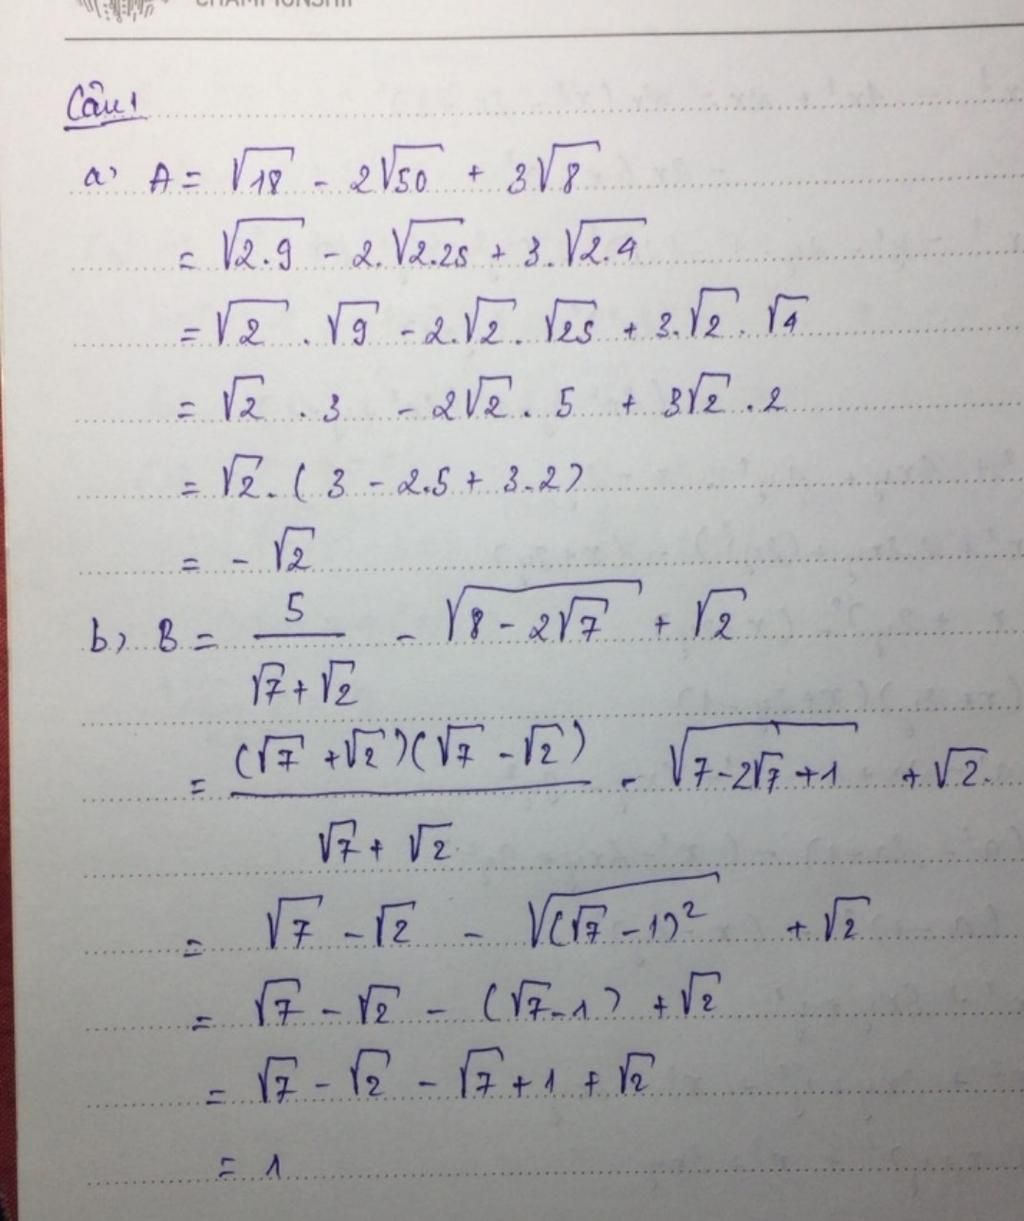 CHAMPIONSHIP
Câu 1
a, A = √18 - 2√50 + 3√8
= √2.9 - 2.√2.25 + 3.√2.4
= √2 . √9 - 2.√2 . √25 + 3.√2 . √4
= √2 . 3 - 2√2 . 5 + 3√2 . 2
= √2 . ( 3 - 2.5 + 3.2)
= - √2
b, B = 5/(√7 + √2) - √(8 - 2√7) + √2
= (√7 + √2)(√7 - √2)/(√7 + √2) - √(7 - 2√7 + 1) + √2.
= √7 - √2 - √((√7 - 1)²) + √2
= √7 - √2 - (√7 - 1) + √2
= √7 - √2 - √7 + 1 + √2
= 1